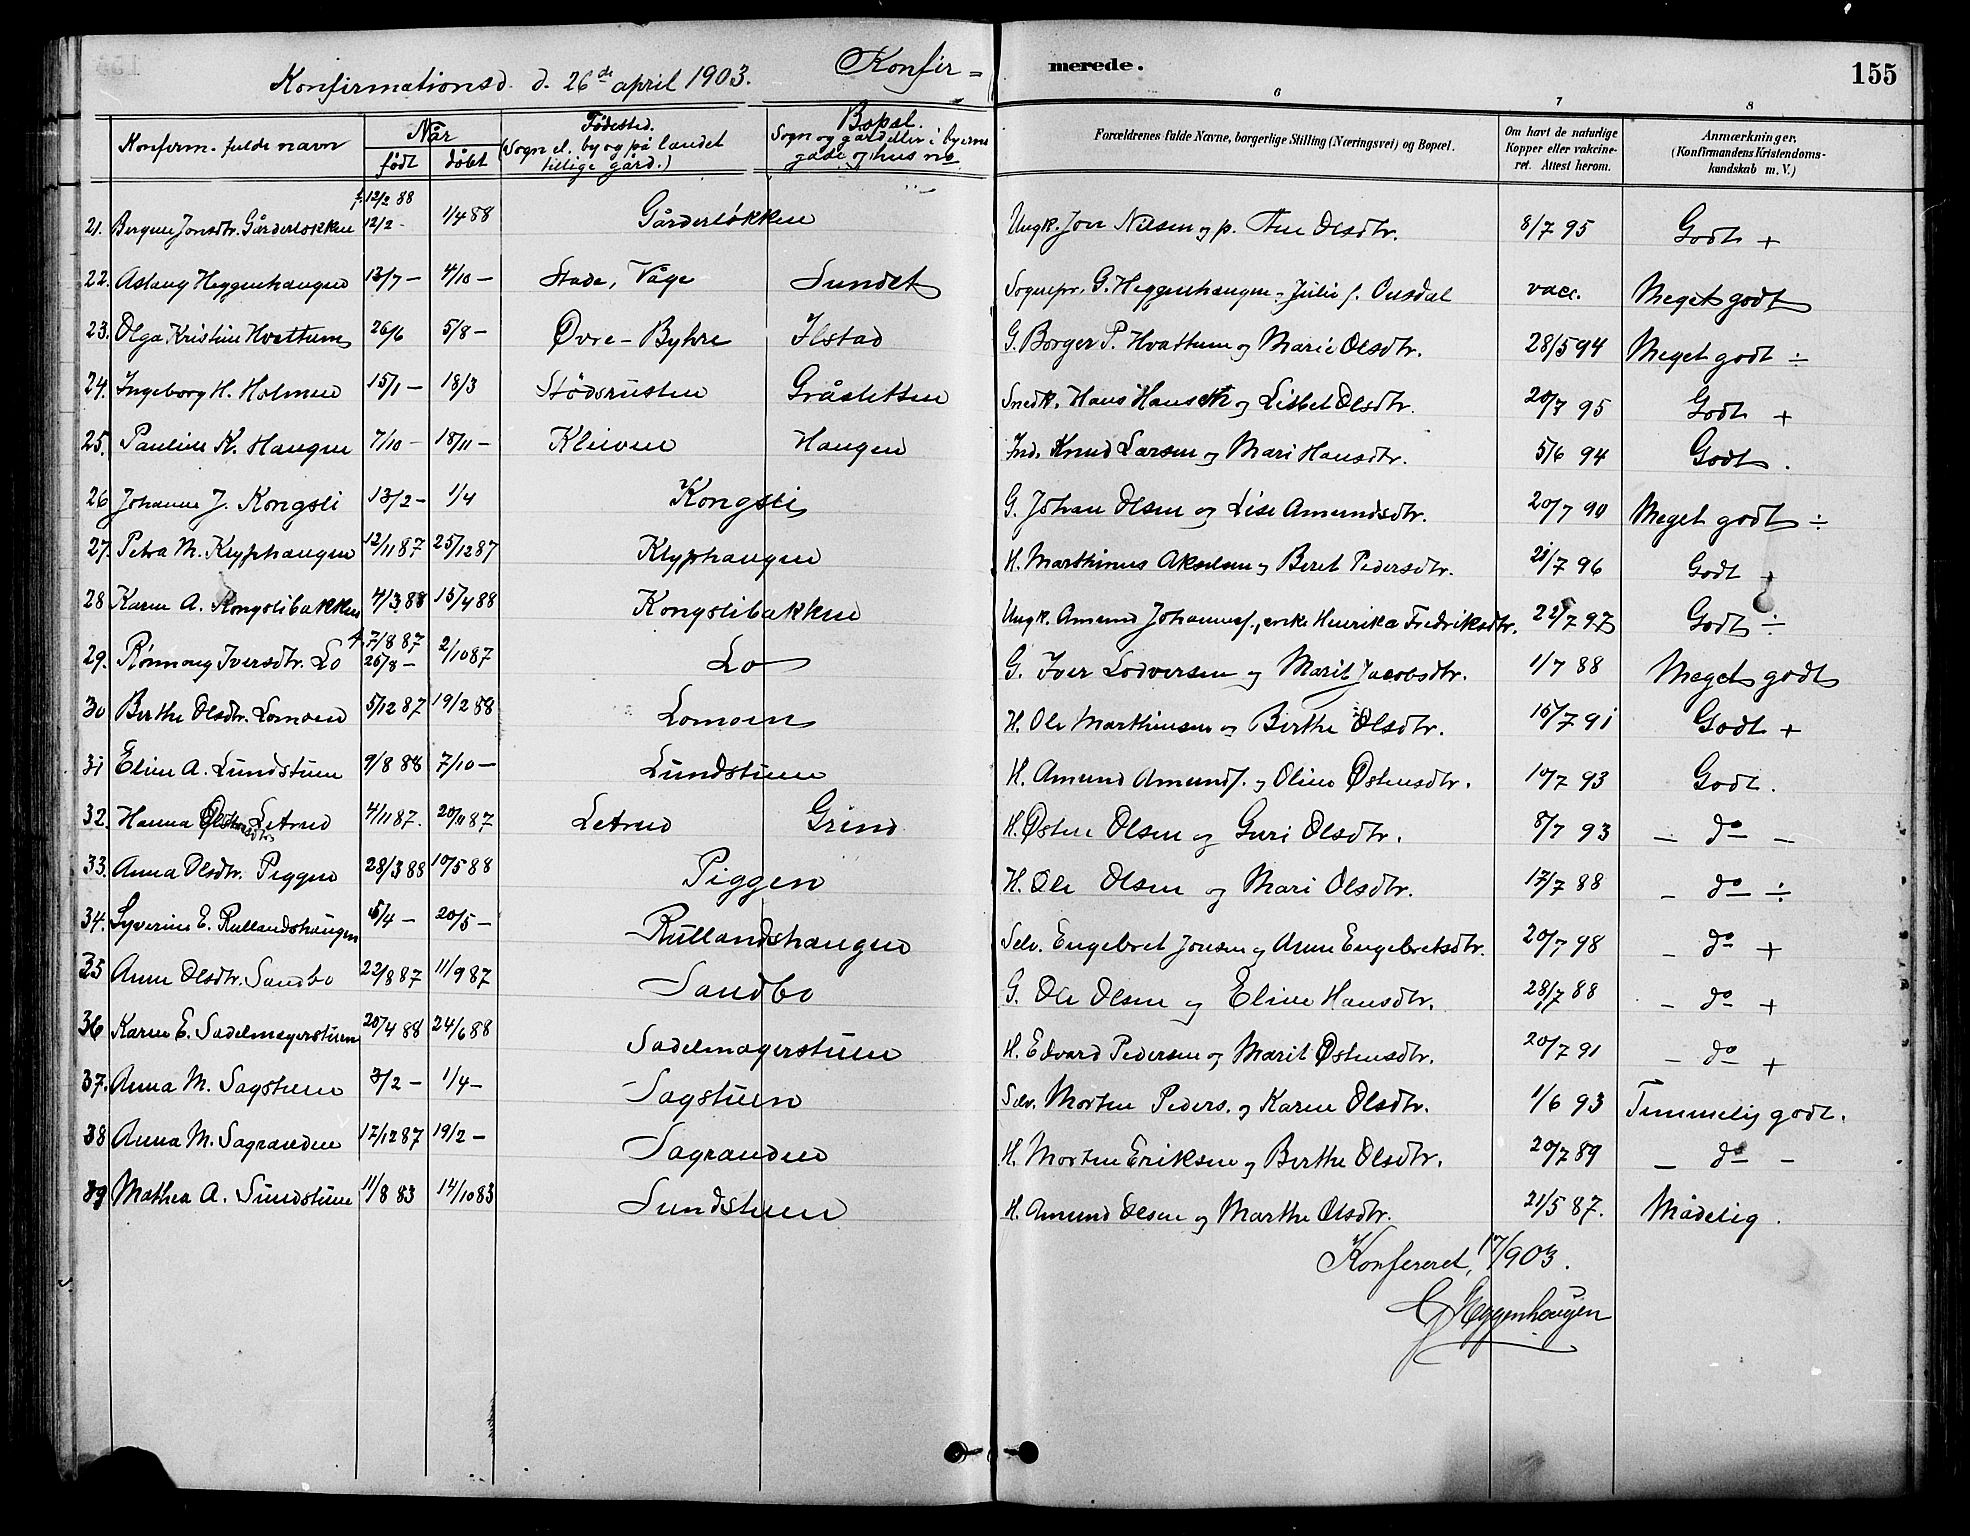 Konfirmationsd. d. 26de april 1903. Konfir = merede. 155
6 7 8
Konferm. fulde navn
Når
født døbt
Fødested.
(Sogn el. by og på landet
tillige gård.)
Bopæl.
Sogn og gård eller i byerne
gade og hus no
Forældrenes fulde Navne, borgerlige Stilling (Næringsvei) og Bopæl.
Om havt de naturlige
Kopper eller vakcine-
ret. Attest herom.
Anmærkninger,
(Konfirmandens Kristendoms-
kundskab m. V.)
f. 12/2 88
21. Bergine Jonsdtr. Gårderløkken 12/2 - 1/4 88 Gårderløkken Ungk. Jon Nilsen og p. Ane Olsdtr. 8/7 95 Godt +
22. Aslaug Heggenhaugen 13/7 - 4/10 - Stade, Våge Sundet Sognepr. G. Heggenhaugen - Julie f. Onsdal vacc. Meget godt
23. Olga Kristine Hvattum 26/6 5/8 - Øvre - Byhre Ilstad G. Borger P. Hvattum og Marie Olsdtr. 28/5 94 Meget godt ÷
24. Ingeborg H. Holmen 15/1 - 18/3 Stødsrusten Gråslitten Snedk. Hans Hanseth og Lisbet Olsdtr. 20/7 95 Godt +
25. Pauline K. Haugen 7/10 - 18/11 - Kleiven Haugen Ind. Knud Larsen og Mari Hansdtr. 5/6 94 Godt.
26 Johanne J. Kongsli 13/2 - 1/4 Kongsli G. Johan Olsen og Lise Amundsdtr. 20/7 90 Meget godt ÷
27. Petra M. Klyphaugen 12/11 87 25/12 87 Klyphaugen H. Marthinus Akselsen og Beret Pedersdtr. 21/7 96 Godt
28 Karen A. Kongslibakken 4/3 88 15/4 88 Kongslibakken Ungk. Amund Johannesf., enke Henrika Fredriksdtr. 22/7 97 Godt ÷
f. 7/8 87
29. Rønnaug Iversdtr. Lo 25/8 - 2/10 87 Lo G. Iver Lodversen og Marit Jacobsdtr. 1/7 88 Meget godt
30 Berthe Olsdtr. Lomoen 5/12 87 19/2 88 Lomoen H. Ole Marthinsen og Berthe Olsdtr. 15/7 91 Godt +
31 Eline A. Lundstuen 9/8 88 7/10 - Lundstuen H. Amund Amundf. og Oline Østensdtr. 10/7 93 Godt.
32. Hanna Østensdtr. Letrud 4/11 87. 20/11 87 Letrud Grind H. Østen Olsen og Guri Olsdtr. 8/7 93 - do -
33. Anna Olsdtr. Piggen 28/3 88 10/5 88 Piggen H. Ole Olsen og Mari Olsdtr. 17/7 88 - do ÷
34. Syverine E. Rullandshaugen 5/4 - 20/5 - Rullandshaugen Selv. Engebret Jonsen og Anne Engebretsdtr. 20/7 98 - do +
35 Anne Olsdtr. Sandbo 22/8 87 11/9 87 Sandbo G. Ole Olsen og Eline Hansdtr. 28/7 88 - do +
36 Karen E. Sadelmagerstuen 20/4 88 24/6 88 Sadelmagerstuen H. Edvard Pedersen og Marit Østensdtr. 20/7 91 - do +
37. Anna M. Sagstuen 3/2 - 1/4 - Sagstuen Selv. Morten Peders. og Karen Olsdtr. 1/6 93 Temmelig godt.
38 Anna M. Sagranden 17/12 87 19/2 - Sagranden H. Morten Eriksen og Berthe Olsdtr. 20/7 89 - do -
39 Mathea A. Sundstuen 11/8 83 14/10 83 Sundstuen H. Amund Olsen og Marthe Olsdtr. 21/5 87. Mådelig.
Konfereret, 903.
G Heggenhaugen